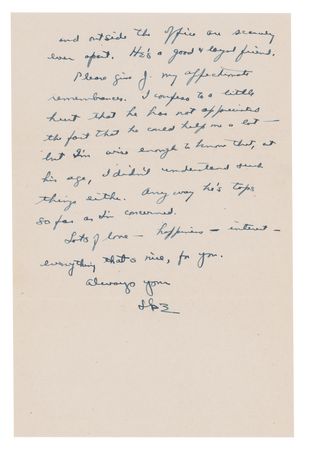 and outside the office are scarcely
ever apart. He's a good & loyal friend.
Please give J. my affectionate
remembrances. I confess to a little
hurt that he has not appreciated
the fact that he could help me a lot —
but I'm wise enough to know that, at
his age, I didn't understand such
things either. Anyway he's tops
so far as I'm concerned.
Lots of love — happiness — interest —
everything that's nice, for you.
Always your